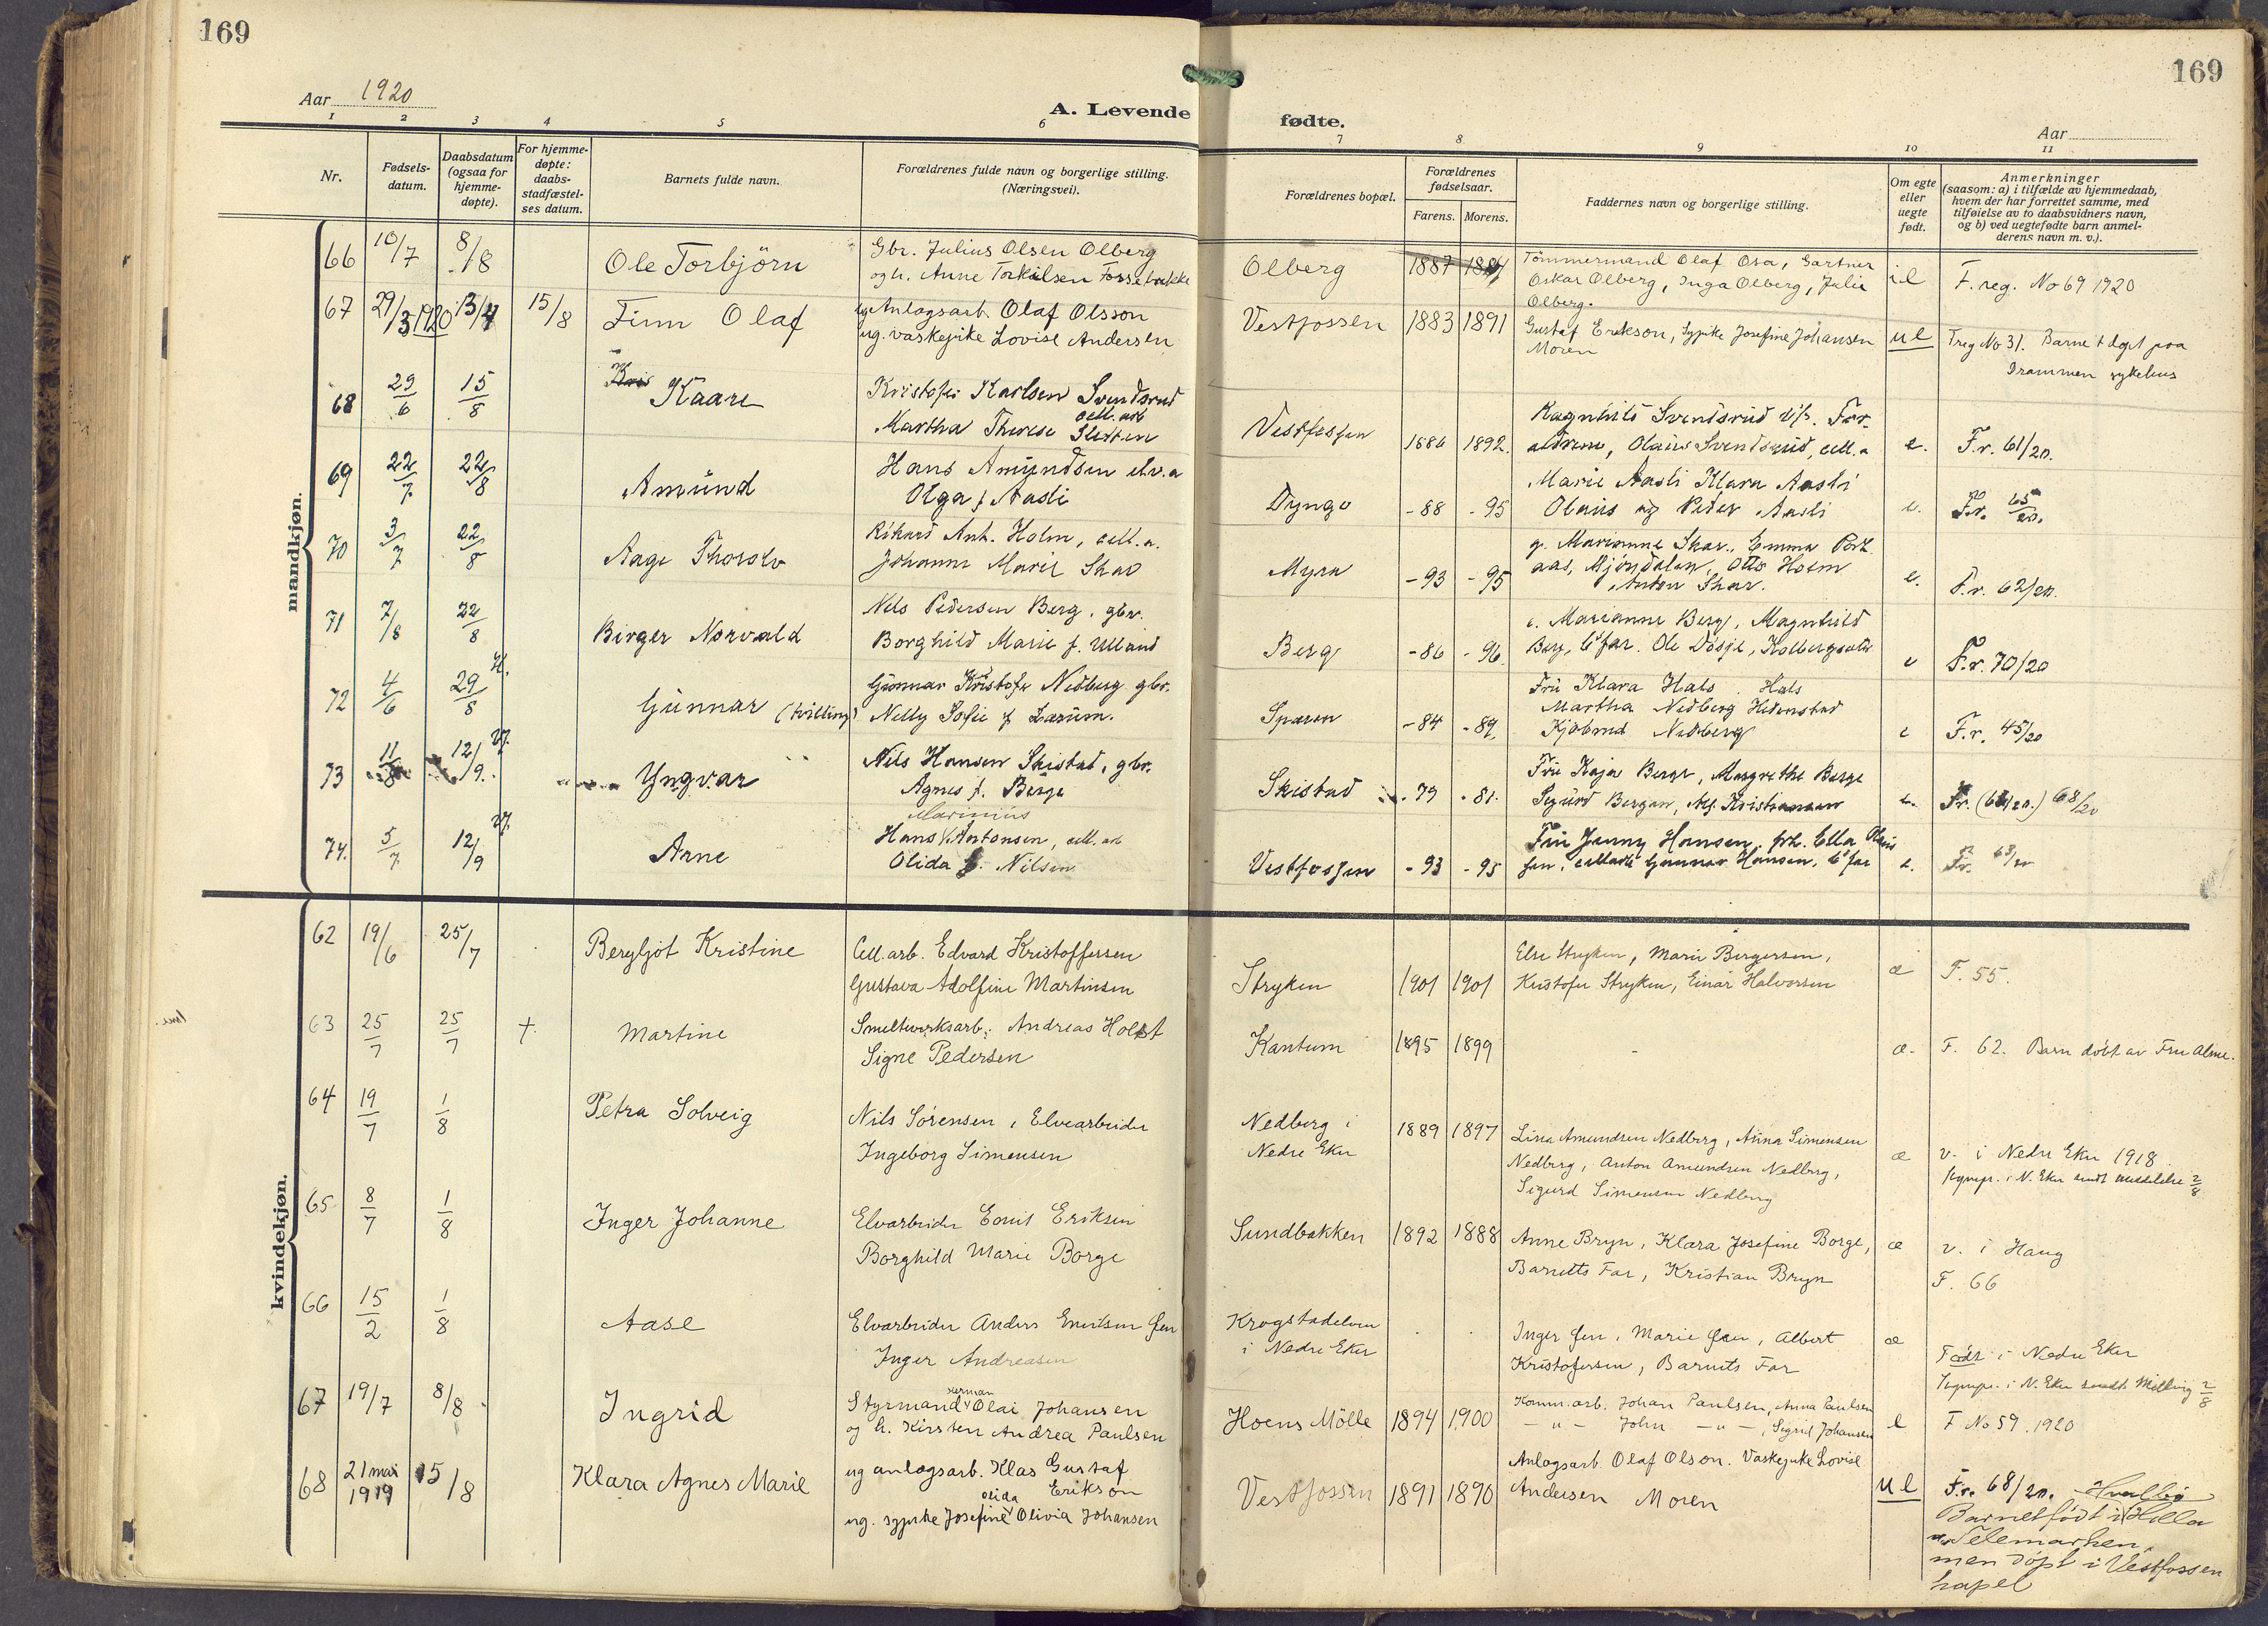 169
169
Aar 1920
A. Levende
fødte.
Aar
1 2 3 4 5 6
7 8 9 10 11
Nr.
Fødsels-
datum.
Daabsdatum
(ogsaa for
hjemme-
døpte).
For hjemme-
døpte:
daabs-
stadfæstel-
ses datum.
Barnets fulde navn.
Forældrenes fulde navn og borgerlige stilling.
(Næringsvei).
Forældrenes bopæl.
Forældrenes
fødselsaar.
Farens. Morens.
Faddernes navn og borgerlige stilling.
Om egte
eller
uegte
født.
Anmerkninger
(saasom: a) i tilfælde av hjemmedaab,
hvem der har forrettet samme, med
tilføielse av to daabsvidners navn,
og b) ved uegtefødte barn anmel-
derens navn m. v.).
mandkjøn.
66 10/7 8/8 Ole Torbjörn Gbr. Julius Olsen Olberg
og h. Anne Torkilsen
Olberg 1887 Tömmermand Olaf Osa, Gartner
Oskar Olberg, Inga Olberg, Julie
Olberg.
F. reg. No 69 1920
67 29/3 1920 13/4 15/8 Finn Olaf ug. Anlagsarb. Olaf Olsson
ug. vaskepike Lovise Andersen
Vestfossen 1883 1891 Gustaf Erikson, Sypike Josefine Johansen
Moren
u l F reg No 31. Barnet døpt paa
Drammen sykehus
68 29/6 15/8 Kaare Kristofer Karlsen Svendsrud
cell. arb
Martha Therese
Vestfossen 1886 1892. Ragnhild Svendsrud, For-
ældrene, Olaus Svendsrud, cell. a
e. F. r. 61/20.
69 22/7 22/8 Amund Hans Amundsen
Olga f. Aasli
Dynge - 88 - 95 Marie Aasli Klara Aasli
Olaus og Peder Aasli
e. F.r. 65/20.
70 3/7 22/8 Aage Thorolv Rikard Ant. Holm, cell. a.
Johanne Marie Skar
Myra - 93 - 95 g. Marianne Skar, Emma
aas, Mjøndalen, Otto Holm
Anton Skar.
e. F.r. 62/20.
71 7/8 22/8 Birger Norvald Nils Pedersen Berg, gbr.
Borghild Marie f. Ulland
Berg - 86 - 96. Marianne Berg, Magnhild
Berg, b'far. Ole Døsje,
e F.r. 70/20
72 4/6 29/8 H. Gunnar (tvilling) Gunnar Kristofer Nedberg gbr.
Nelly Sofie f Larum.
Sparen - 84 - 89. Fru Klara Hals. Hals
Martha Nedberg Hedenstad
Nedberg
e F.r. 45/20
73 11/8 12/9. Vf. Yngvar Nils Hansen Skistad, gbr.
Agnes f. Berge
Skistad - 79 - 81. Fru Kaja Berge, Margrethe Berge
Sigurd Bergan, Alf. Kristiansen
e. F.r. 68/20
74. 5/7 12/9 Vf. Arne Marinius
Hans Antonsen, cell. arb
Olida f. Nilsen
Vestfossen - 93 - 95 Fru Jenny Hansen, frk. Ella
sen, cellarb Gunnar Hansen, b'far
e. Fr. 63/20
kvindekjøn.
62 19/6 25/7 Bergljot Kristine Cell. arb. Edvard Kristoffersen
Gustava Adolfine Martinsen
Stryken 1901 1901 Else Stryken, Marie Birgersen,
Kristofer Stryken, Einar Halvorsen
æ F. 55.
63 25/7 25/7 † Martine Smelteverksarb. Andreas Holst
Signe Pedersen
Kantum 1895 1899 - æ. F. 62. Barn døbt av Fru Alme.
64 19/7 1/8 Petra Solveig Nils Sörensen, Elvearbeider
Ingeborg Simensen
Nedberg i
Nedre Eker
1889 1897 Lina Amundsen Nedberg, Anna Simensen
Nedberg, Anton Amundsen Nedberg,
Sigurd Simensen Nedberg
æ v. i Nedre Eker 1918
Sognepr. i N. Eker sendt meddelelse 2/8
65 8/7 1/8 Inger Johanne Elvarbeider Emil Eriksen
Borghild Marie Borge
Sundbakken 1892 1888 Anne Bryn, Klara Josefine Borge,
Barnets Far, Kristian Bryn
æ v. i Haug
F. 66
66 15/2 1/8 Aase Elvarbeider Anders Enertsen
Inger Andreasen
Krogstadelven
i Nedre Eker
Inger, Marie, Albert
Kristofersen, Barnets Far
æ Født i Nedre Eker
Sognepr. i N. Eker sendt Melding 2/8
67 19/7 8/8 Ingrid herman
Styrmand Olai Johansen
og h. Kirsten Andrea Paulsen
Hoens Mölle 1894 1900 Komm. arb. Johan Paulsen, Anna Paulsen
- " - John - " -, Sigrid Johansen
F No 59. 1920
68 21 mai
1919 15/8 Klara Agnes Marie ug anlagsarb. Klas Gustaf
Erikson
olida
ug. sypike Josefine Olivia Johansen
Vestfossen 1891 1890 Anlagsarb. Olaf Olson. Vaskepike Lovise
Andersen Moren
u l F.r. 68/20.
Barnet født i Holla
Telemarken,
men döpt i Vestfossen
kapel